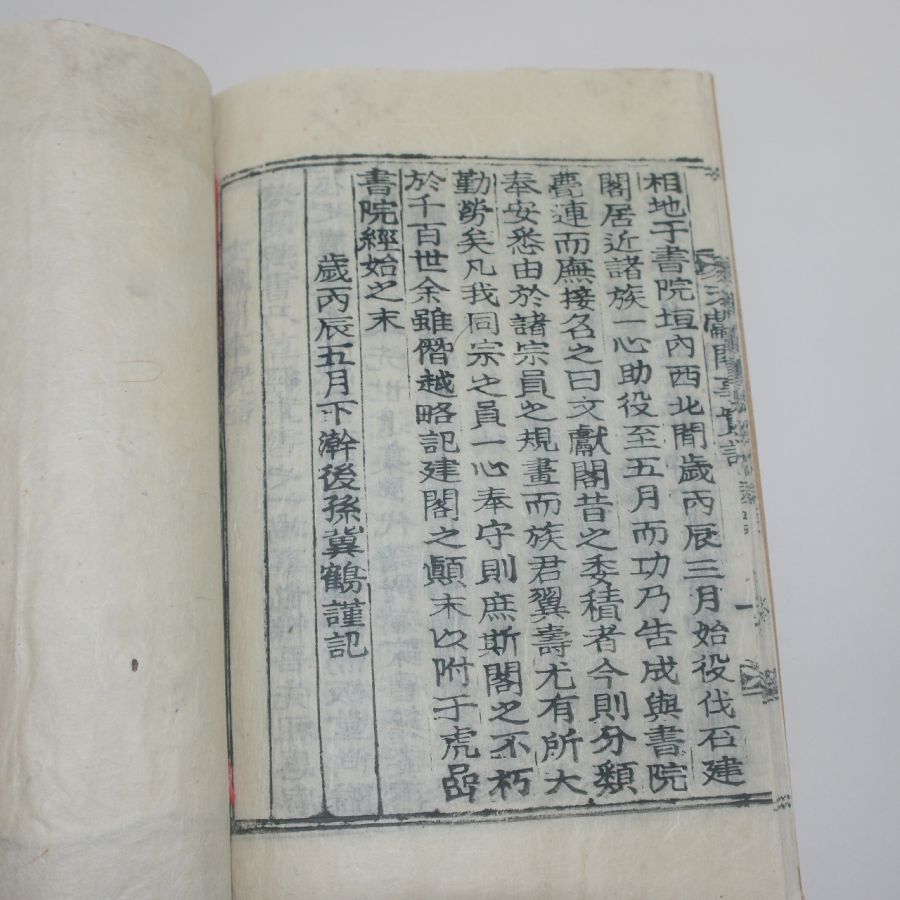 相地于書院垣內西北間歲丙辰三月始役伐石建
閣居近諸族一心助役至五月而功乃告成與書院
甍連而廡接名之曰文獻閣昔之委積者今則分類
奉安悉由於諸宗員之規畫而族君翼壽尤有所大
勤勞矣凡我同宗之員一心奉守則庶斯閣之不朽
於千百世余雖僭越略記建閣之顚末以附于虎嵒
書院經始之末
歲丙辰五月下澣後孫冀鶴謹記